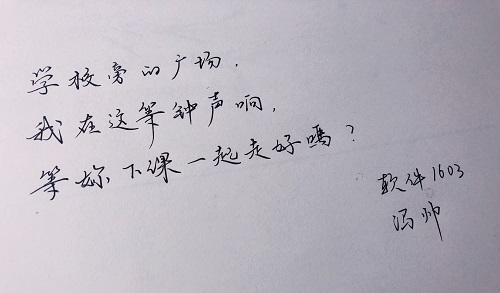 学校旁的广场，
我在这等钟声响，
等妳下课一起走好嗎？
软件1603
冯帅